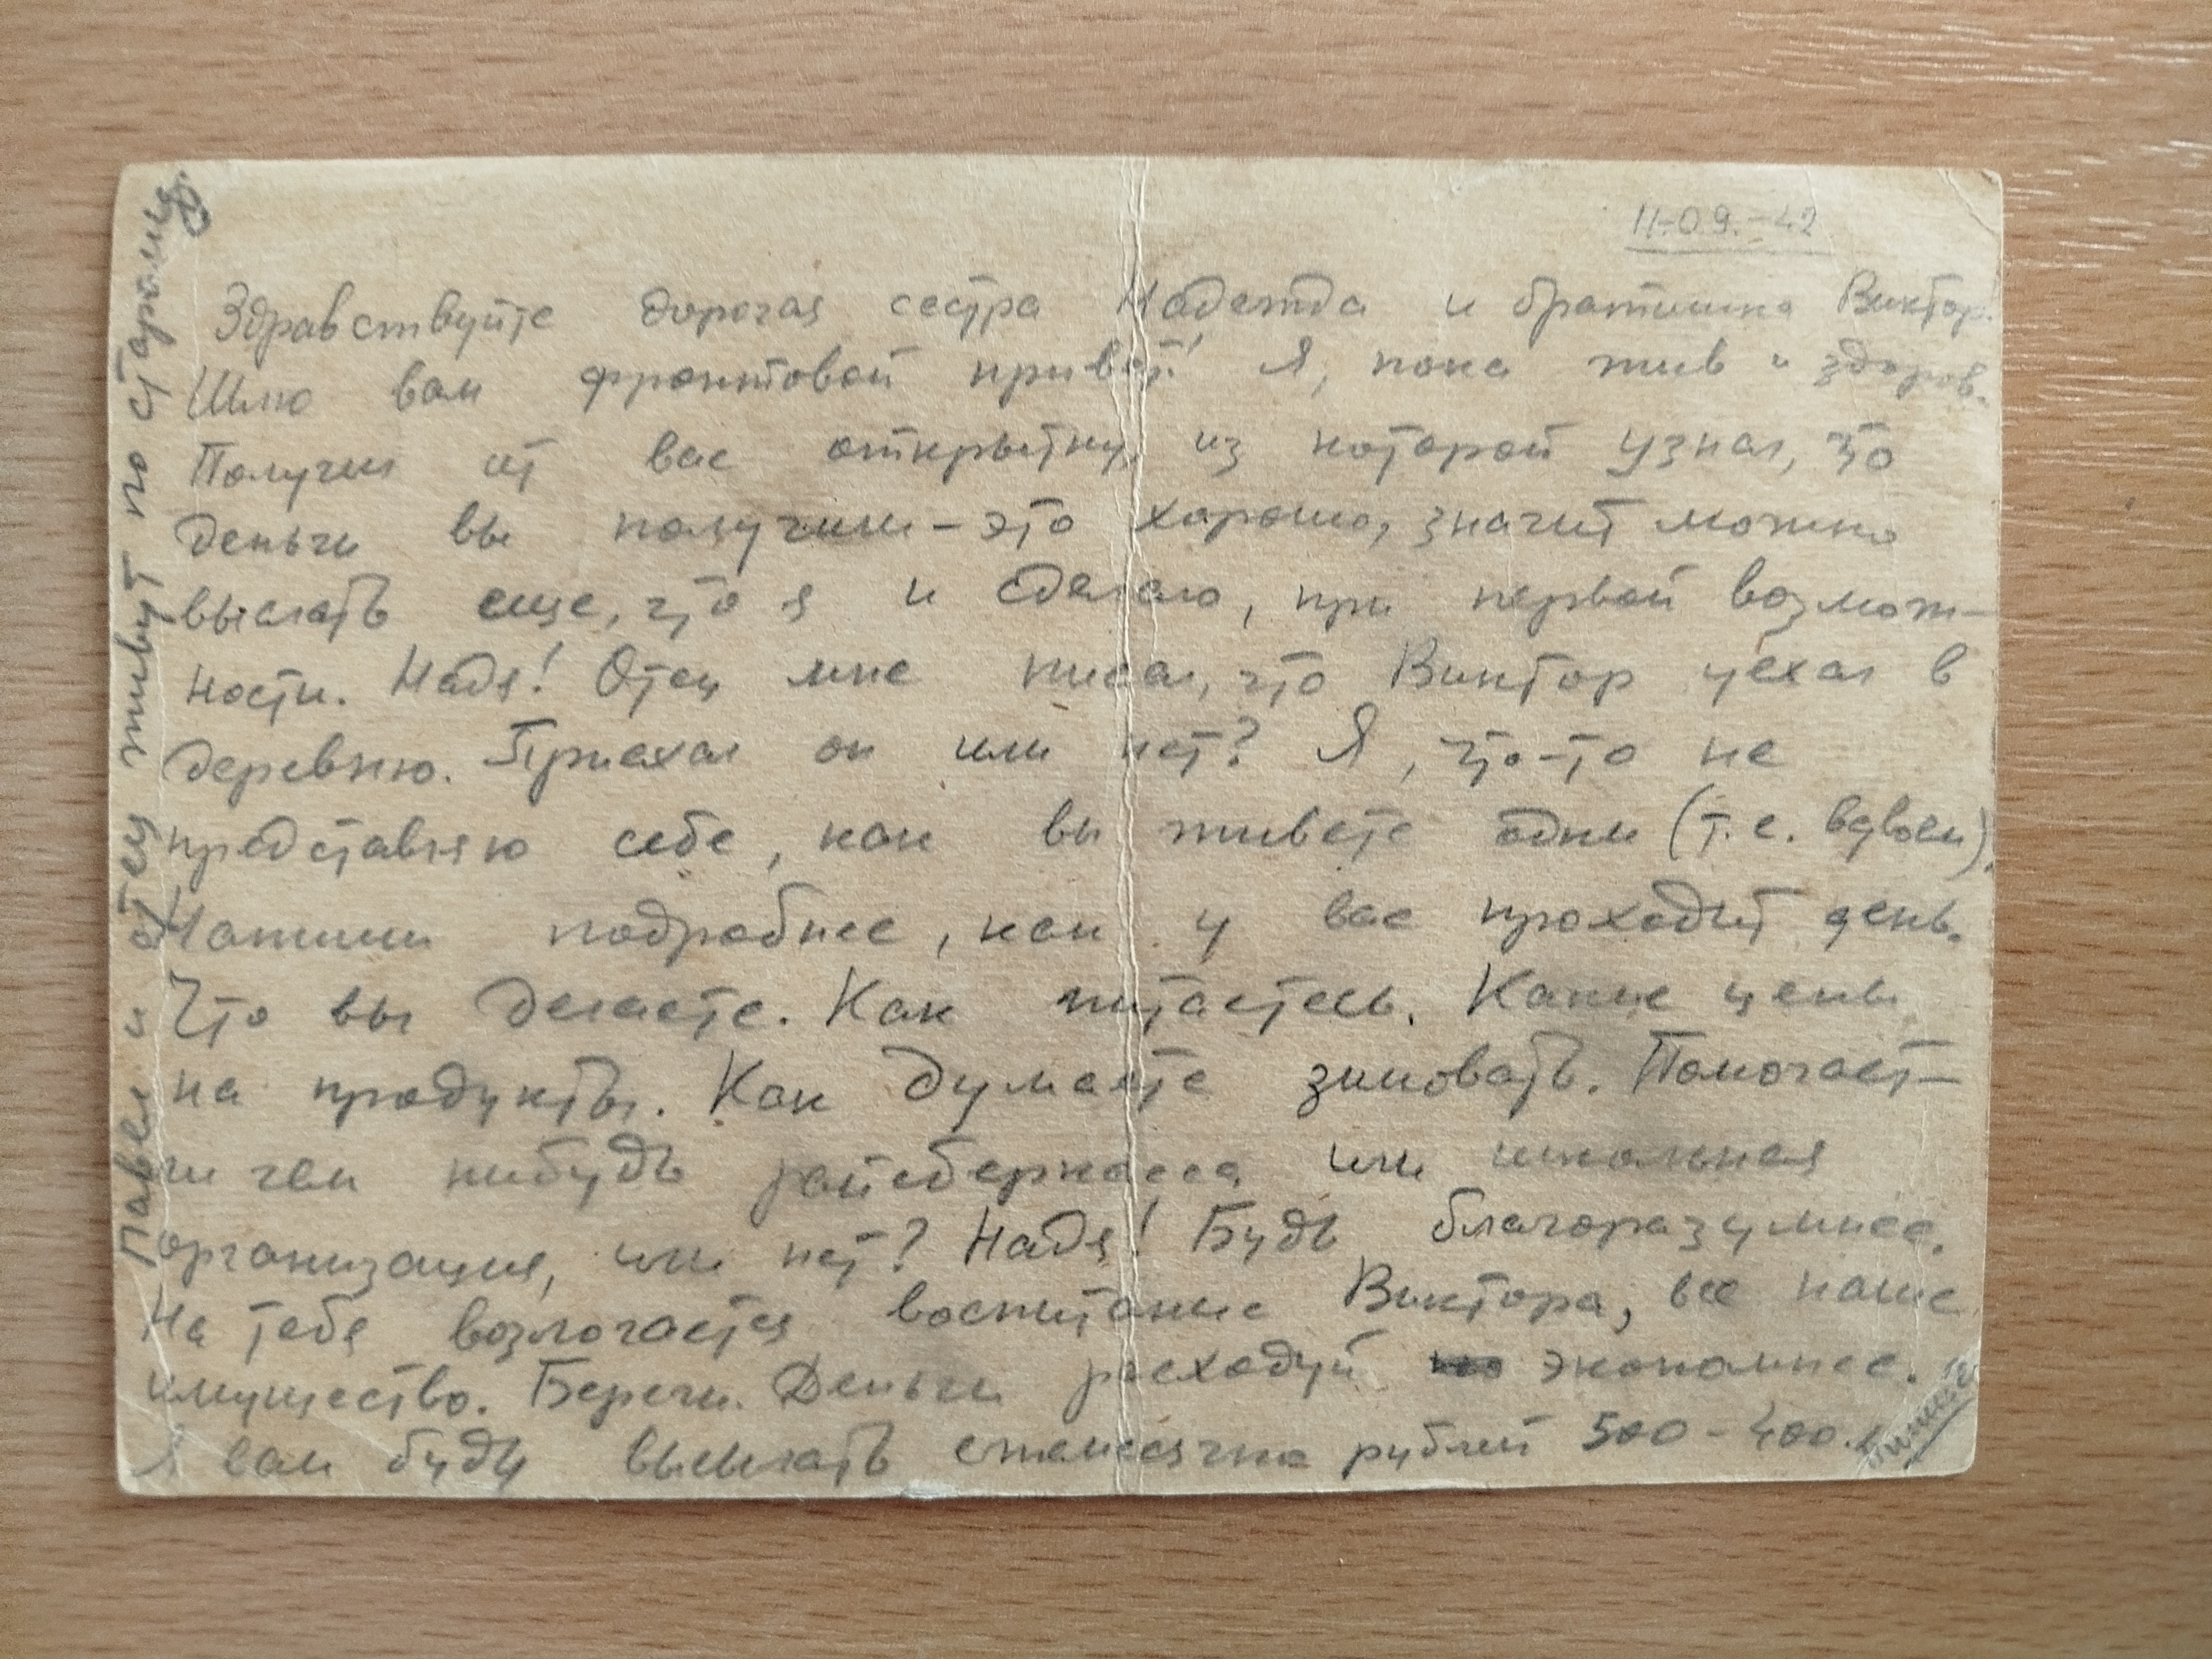 11-09.-42
Здравствуйте дорогая сестра Надежда и братишка Виктор.
Шлю вам фронтовой привет! Я, пока жив и здоров.
Получил от вас открытку, из которой узнал, что
деньги вы получили - это хорошо, значит можно
выслать еще, что я и сделаю, при первой возмож-
ности. Надя! Отец мне писал, что Виктор уехал в
деревню. Приехал он или нет? Я, что-то не
представляю себе, как вы живете одни (т.е. вдвоем).
Напиши подробнее, как у вас проходит день.
Что вы делаете. Как питаетесь. Какие цены
на продукты. Как думаете зимовать. Помогает-
ли чем нибудь райсберкасса или школьная
организация, или нет? Надя! Будь благоразумнее.
На тебя возлогается воспитание Виктора, все наше
имущество. Береги. Деньги расходуй экономнее.
Я вам буду высылать ежемесячно рублей 500-400.
пишите
Павел и отец живут по старому.